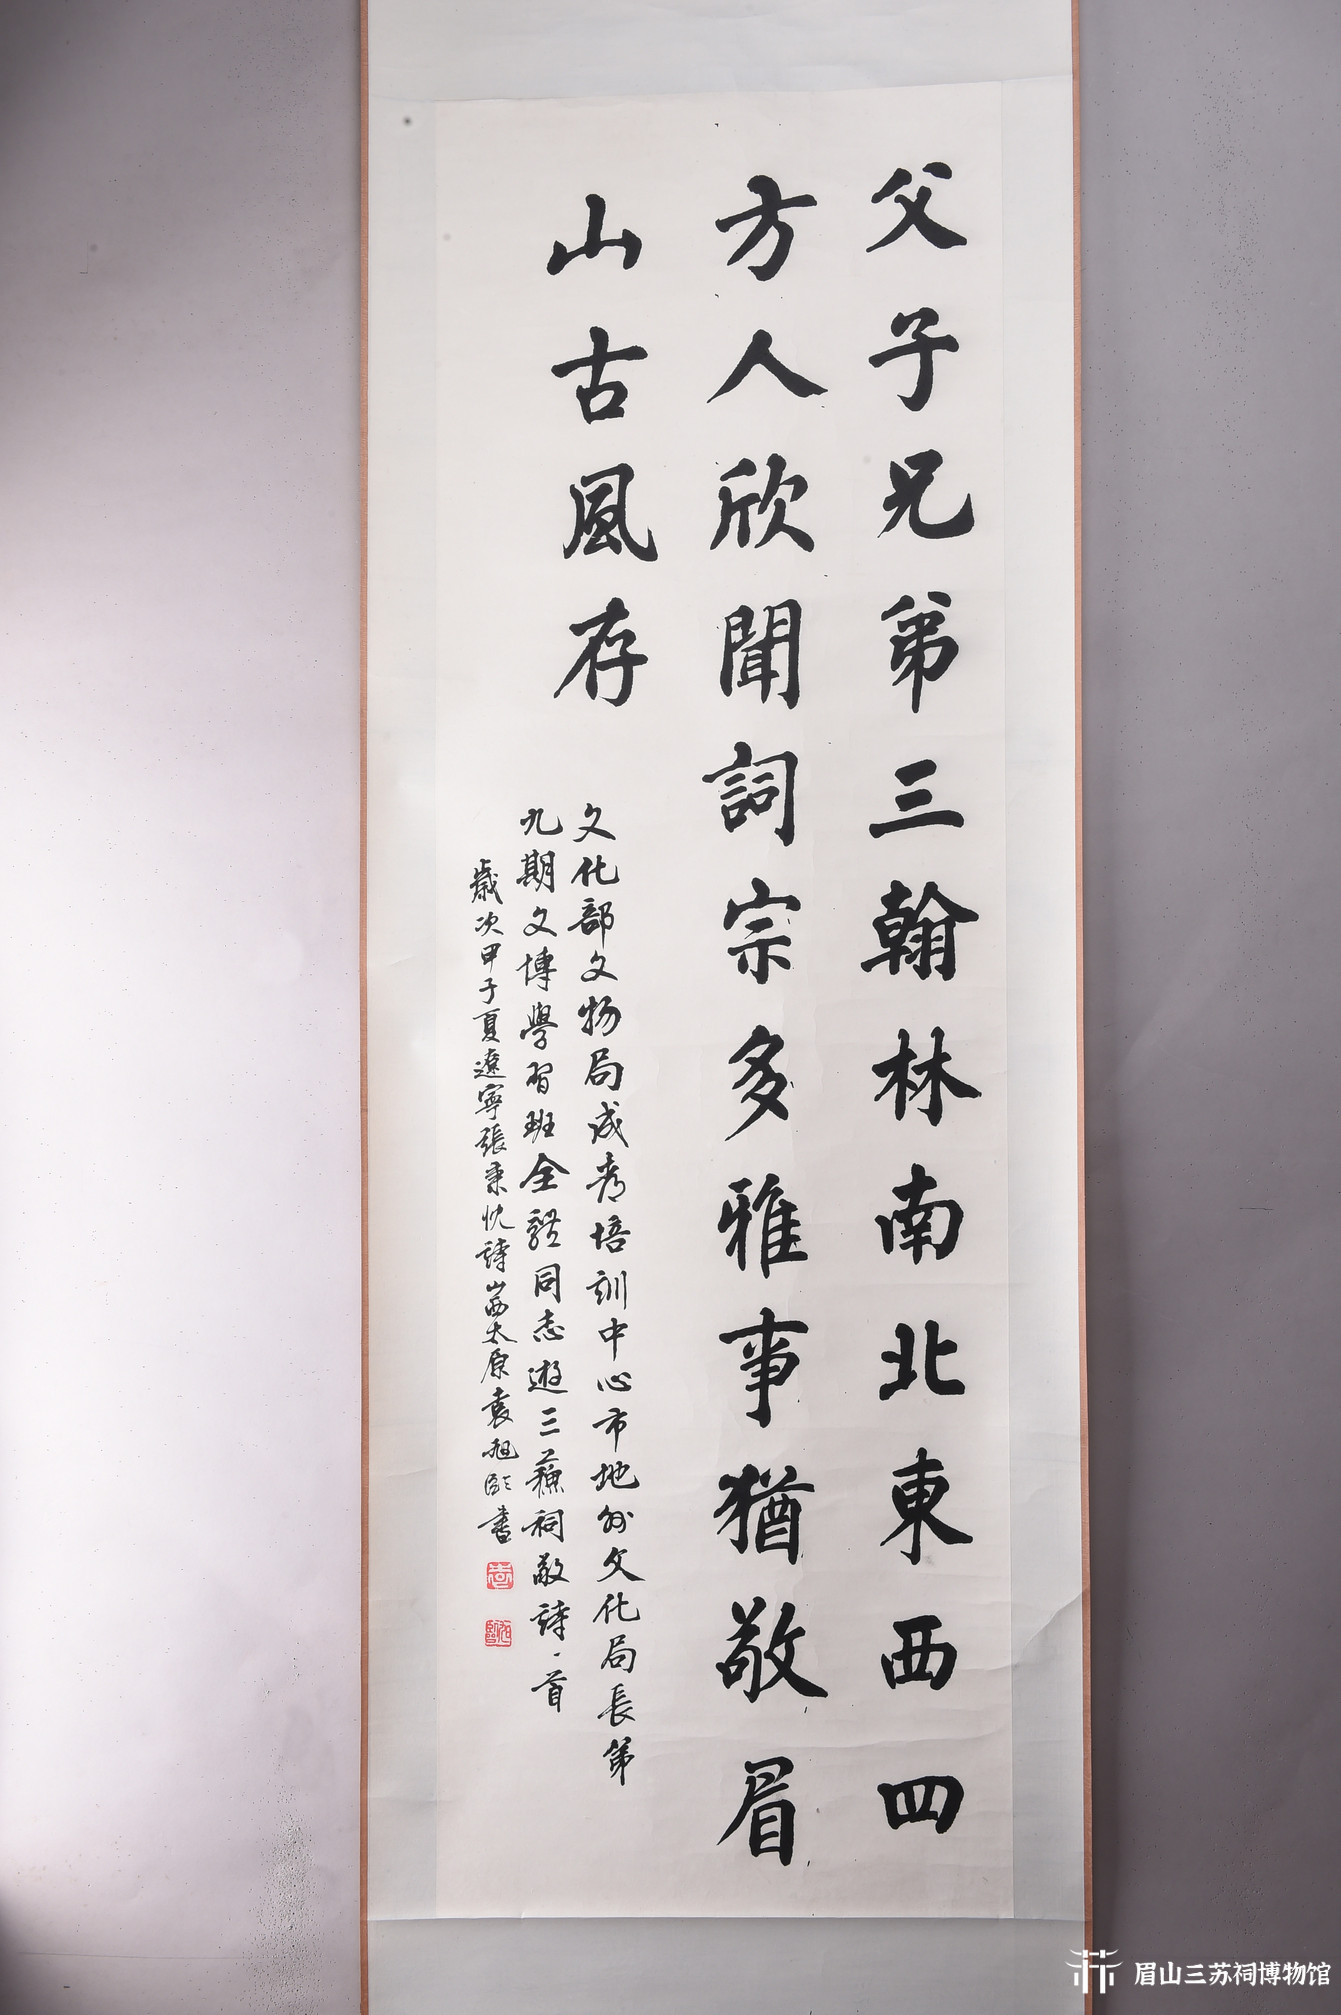 父子兄弟三翰林南北東西四
方人欣聞詞宗多雅事猶敬眉
山古風存
文化部文物局咸都培訓中心市地州文化局長第
九期文博學習班全體同志遊三蘇祠敬詩一首
歲次甲子夏遼寧張秉忱詩山西太原袁旭臨書
眉山三苏祠博物馆